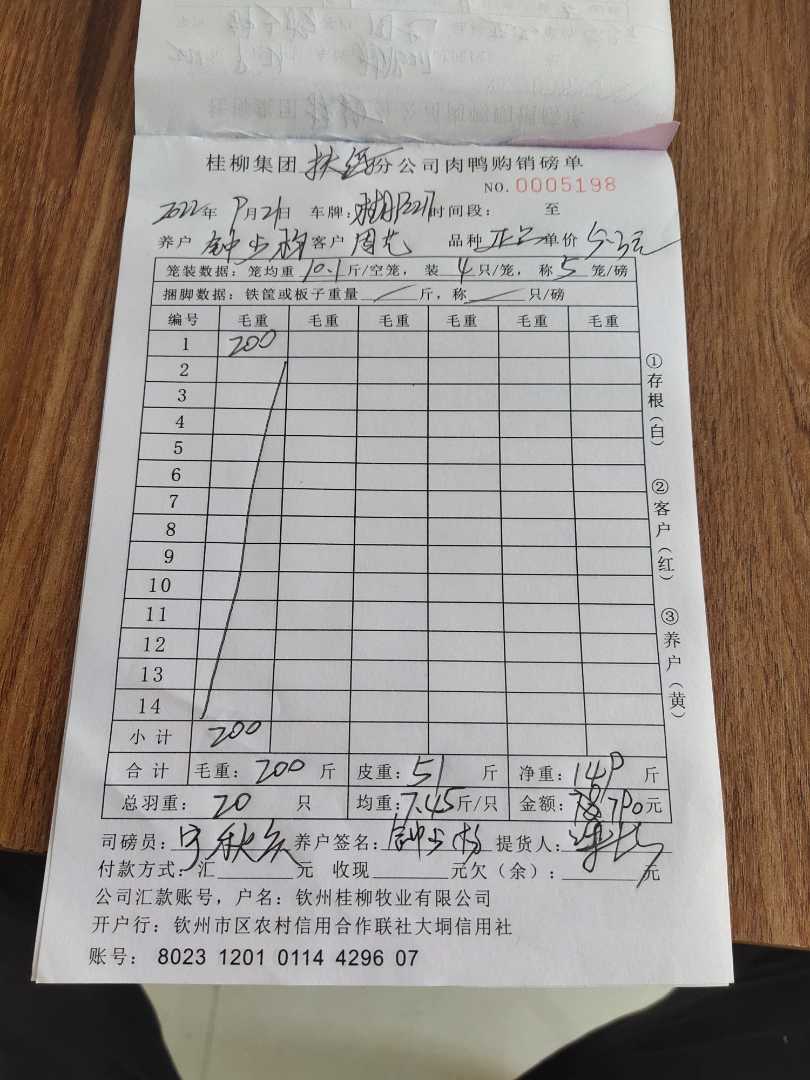 桂柳集团 扶绥分公司肉鸭购销磅单
NO.0005198
2022年9月21日 车牌: 时间段: 至
养户 钟 客户 周 品种 正品 单价 5.3元
笼装数据: 笼均重 10.1 斤/空笼, 装 4 只/笼, 称 5 笼/磅
捆脚数据: 铁筐或板子重量 / 斤, 称 / 只/磅
编号 毛重 毛重 毛重 毛重 毛重 毛重
1 200
2
3
4
5
6
7
8
9
10
11
12
13
14
小计 200
合计 毛重: 200 斤 皮重: 51 斤 净重: 149 斤
总羽重: 20 只 均重: 7.45 斤/只 金额: 元
司磅员: 养户签名: 钟 提货人:
付款方式: 汇 元 收现 元欠(余): 元
公司汇款账号, 户名: 钦州桂柳牧业有限公司
开户行: 钦州市区农村信用合作联社大垌信用社
账号: 8023 1201 0114 4296 07
①存根(白)
②客户(红)
③养户(黄)